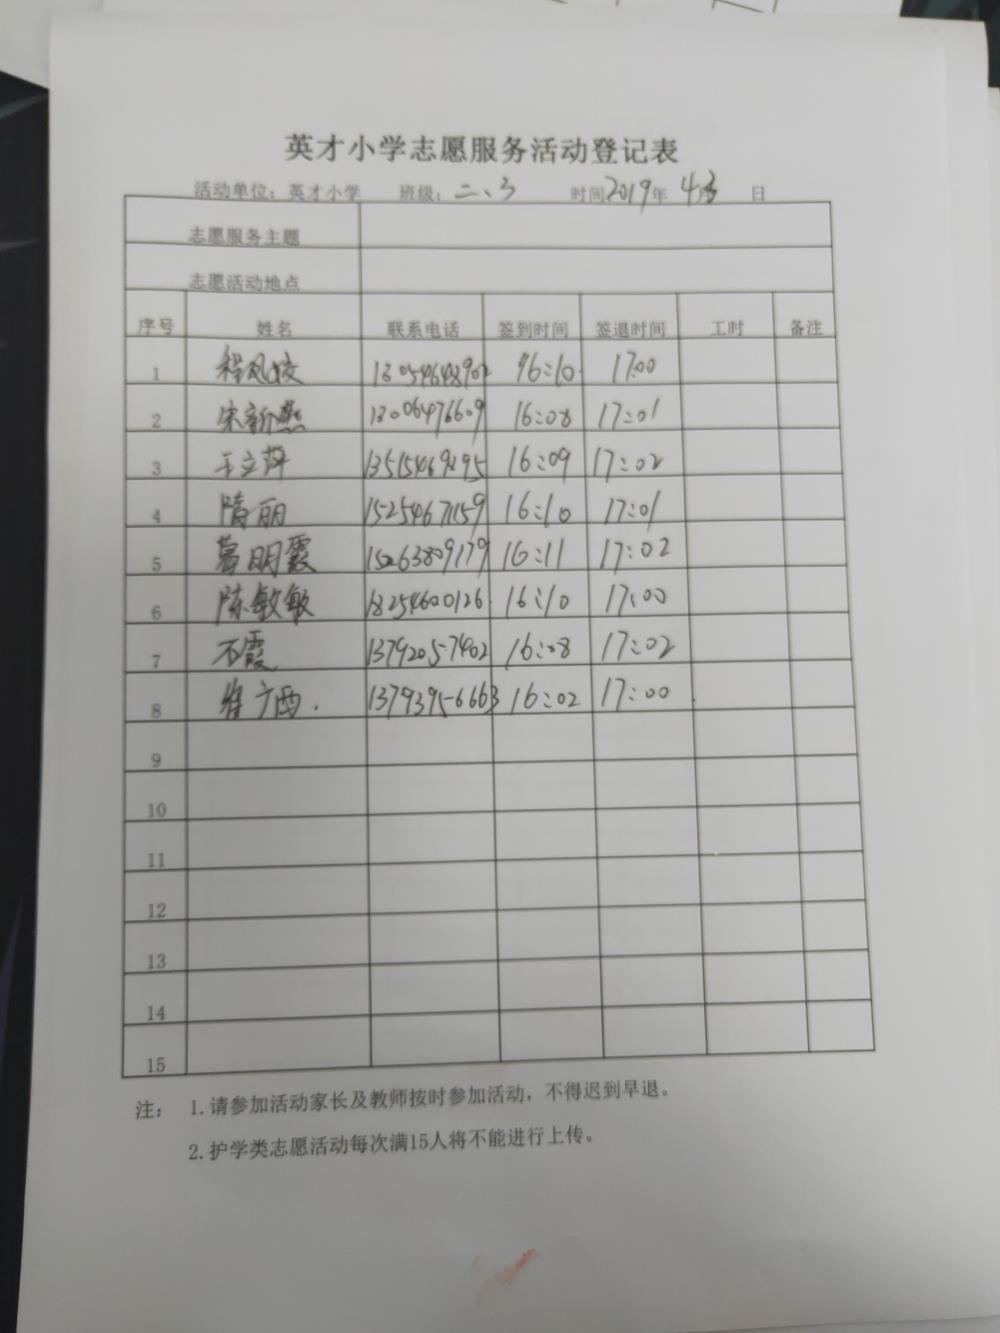 英才小学志愿服务活动登记表
活动单位：英才小学 班级：二、3 时间2019年 4月3 日
志愿服务主题
志愿活动地点
序号 姓名 联系电话 签到时间 签退时间 工时 备注
1 程凤姣 13054648902 16:10 17:00
2 宋新燕 13006476609 16:08 17:01
3 王立萍 13515469195 16:09 17:02
4 隋丽 15254671159 16:10 17:01
5 葛明霞 15263809179 16:11 17:02
6 陈敏敏 18254600126 16:10 17:00
7 石霞 13792057402 16:08 17:02
8 13793956663 16:02 17:00
9
10
11
12
13
14
15
注： 1.请参加活动家长及教师按时参加活动，不得迟到早退。
2.护学类志愿活动每次满15人将不能进行上传。